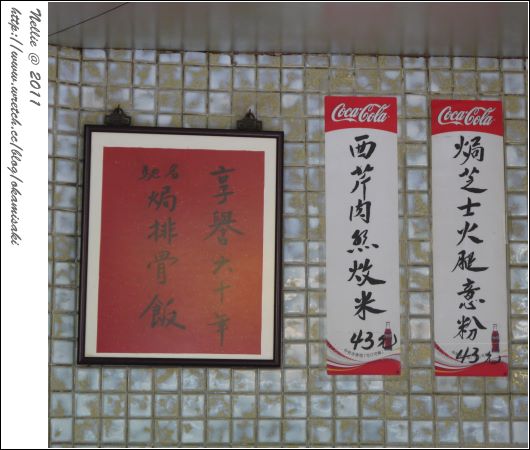 Nellie @ 2011
http://www.wretch.cc/blog/okamisaki
享譽六十年
馳名
焗排骨飯
Coca-Cola
西芹肉絲炆米
43元
Coca-Cola
焗芝士火腿意粉
43元